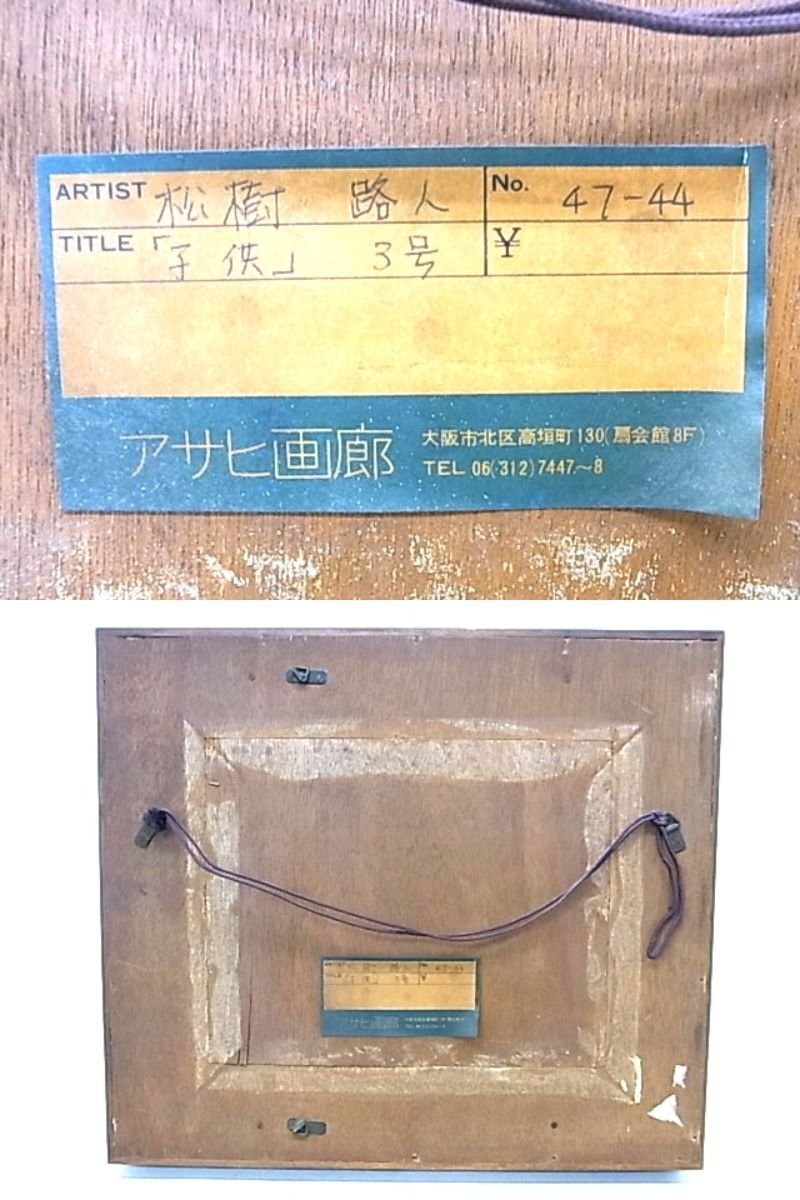 ARTIST 松樹 路人 No. 47-44
TITLE 「子供」 3号 ¥
アサヒ画廊 大阪市北区高垣町130(扇会館8F)
TEL 06(312)7447~8